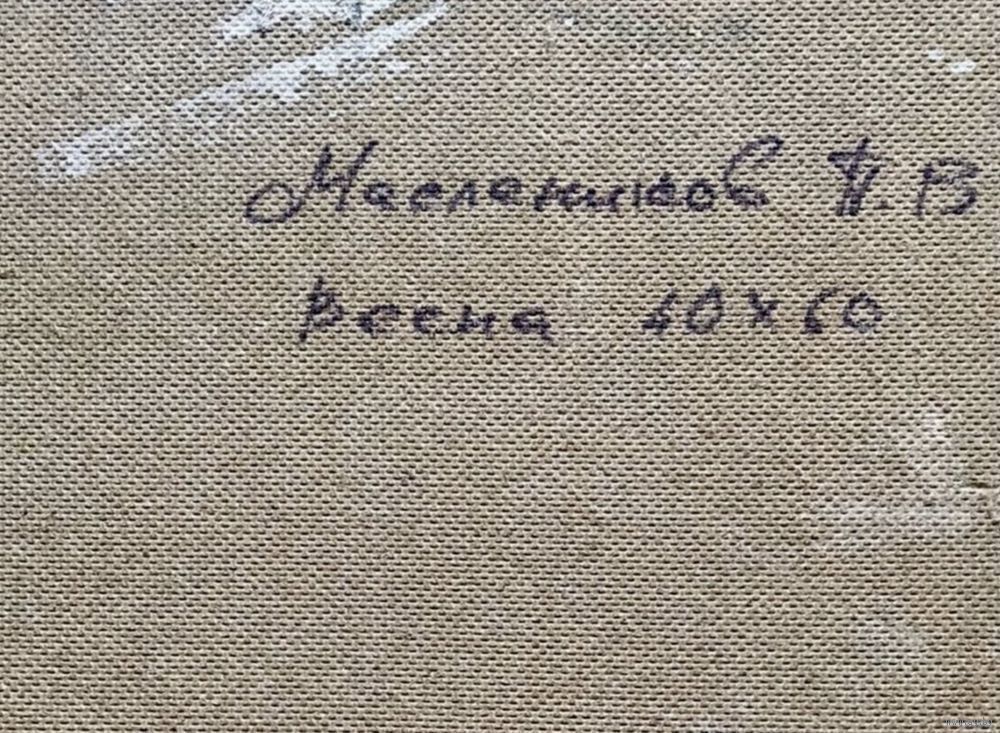 Масленников П. В
весна 40 х 60